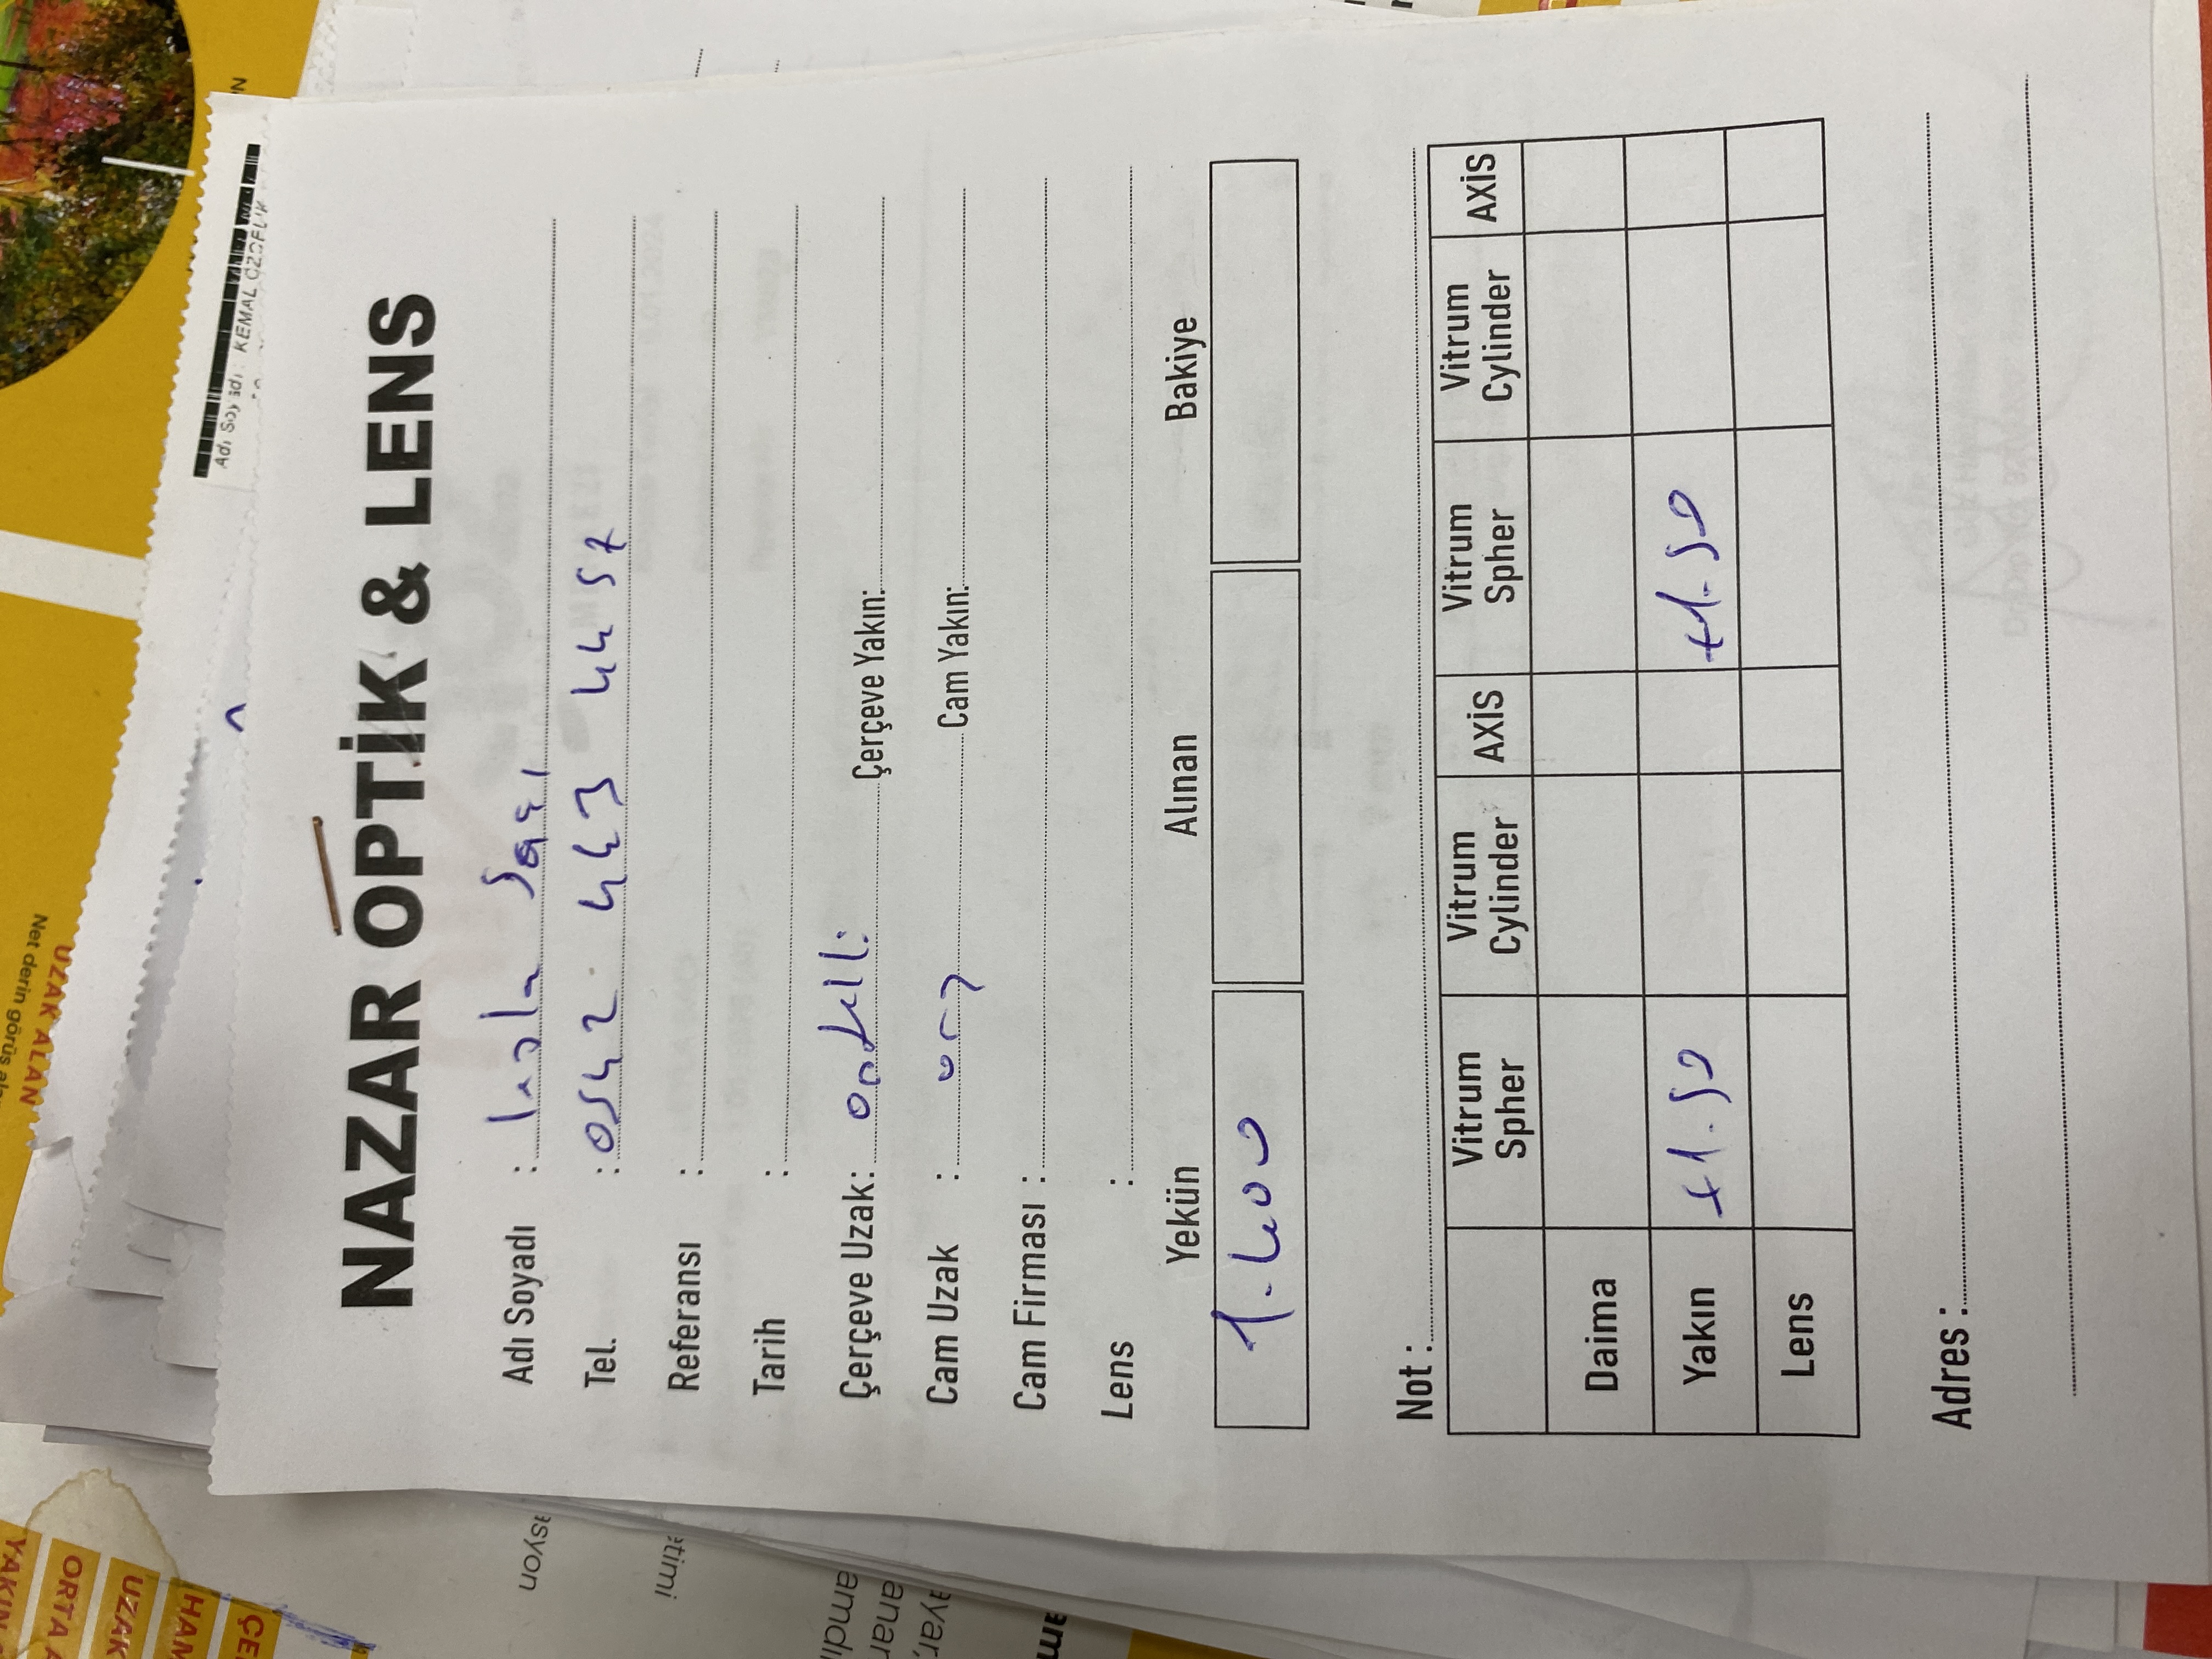 YAKIN
ORTA A
UZAK
HAM
ÇE
UZAK ALAN
Net derin görüş ala
Adı Soyadı : KEMAL
NAZAR OPTİK & LENS
Adı Soyadı : Leyla Sacı
Tel. : 0542 443 44 57
Referansı :
Tarih :
Çerçeve Uzak: optelli Çerçeve Yakın:
Cam Uzak : org Cam Yakın:
Cam Firması :
Lens :
Yekün Alınan Bakiye
1.400
Not :
Vitrum Spher Vitrum Cylinder AXİS Vitrum Spher Vitrum Cylinder AXİS
Daima
Yakın +1.50 +1.50
Lens
Adres :